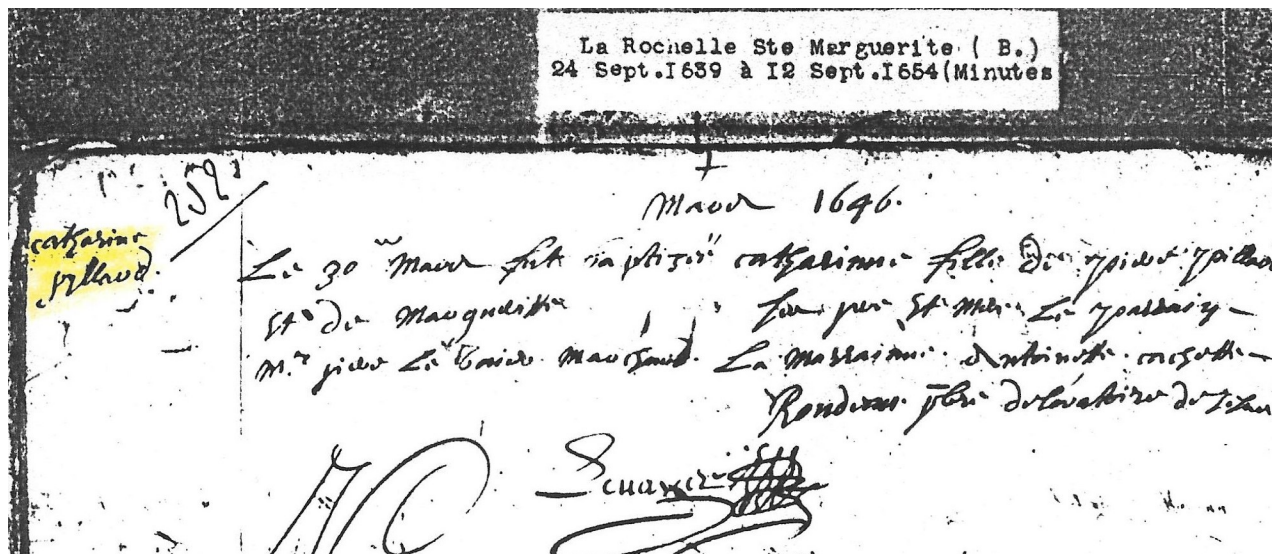 La Rochelle Ste Marguerite ( B.)
24 Sept.I639 à I2 Sept.I654(Minutes
252
Mars 1646.
catharine
pillard.
Le 30 Mars fut baptizée catharinne fille de piere pillar
Et de Marguerite ses pere Et Mere Le parrain
Mr. piere Le Marchand. La Marrainne. Antoinette.
Rondeau pbre de Loratoire de Jesu